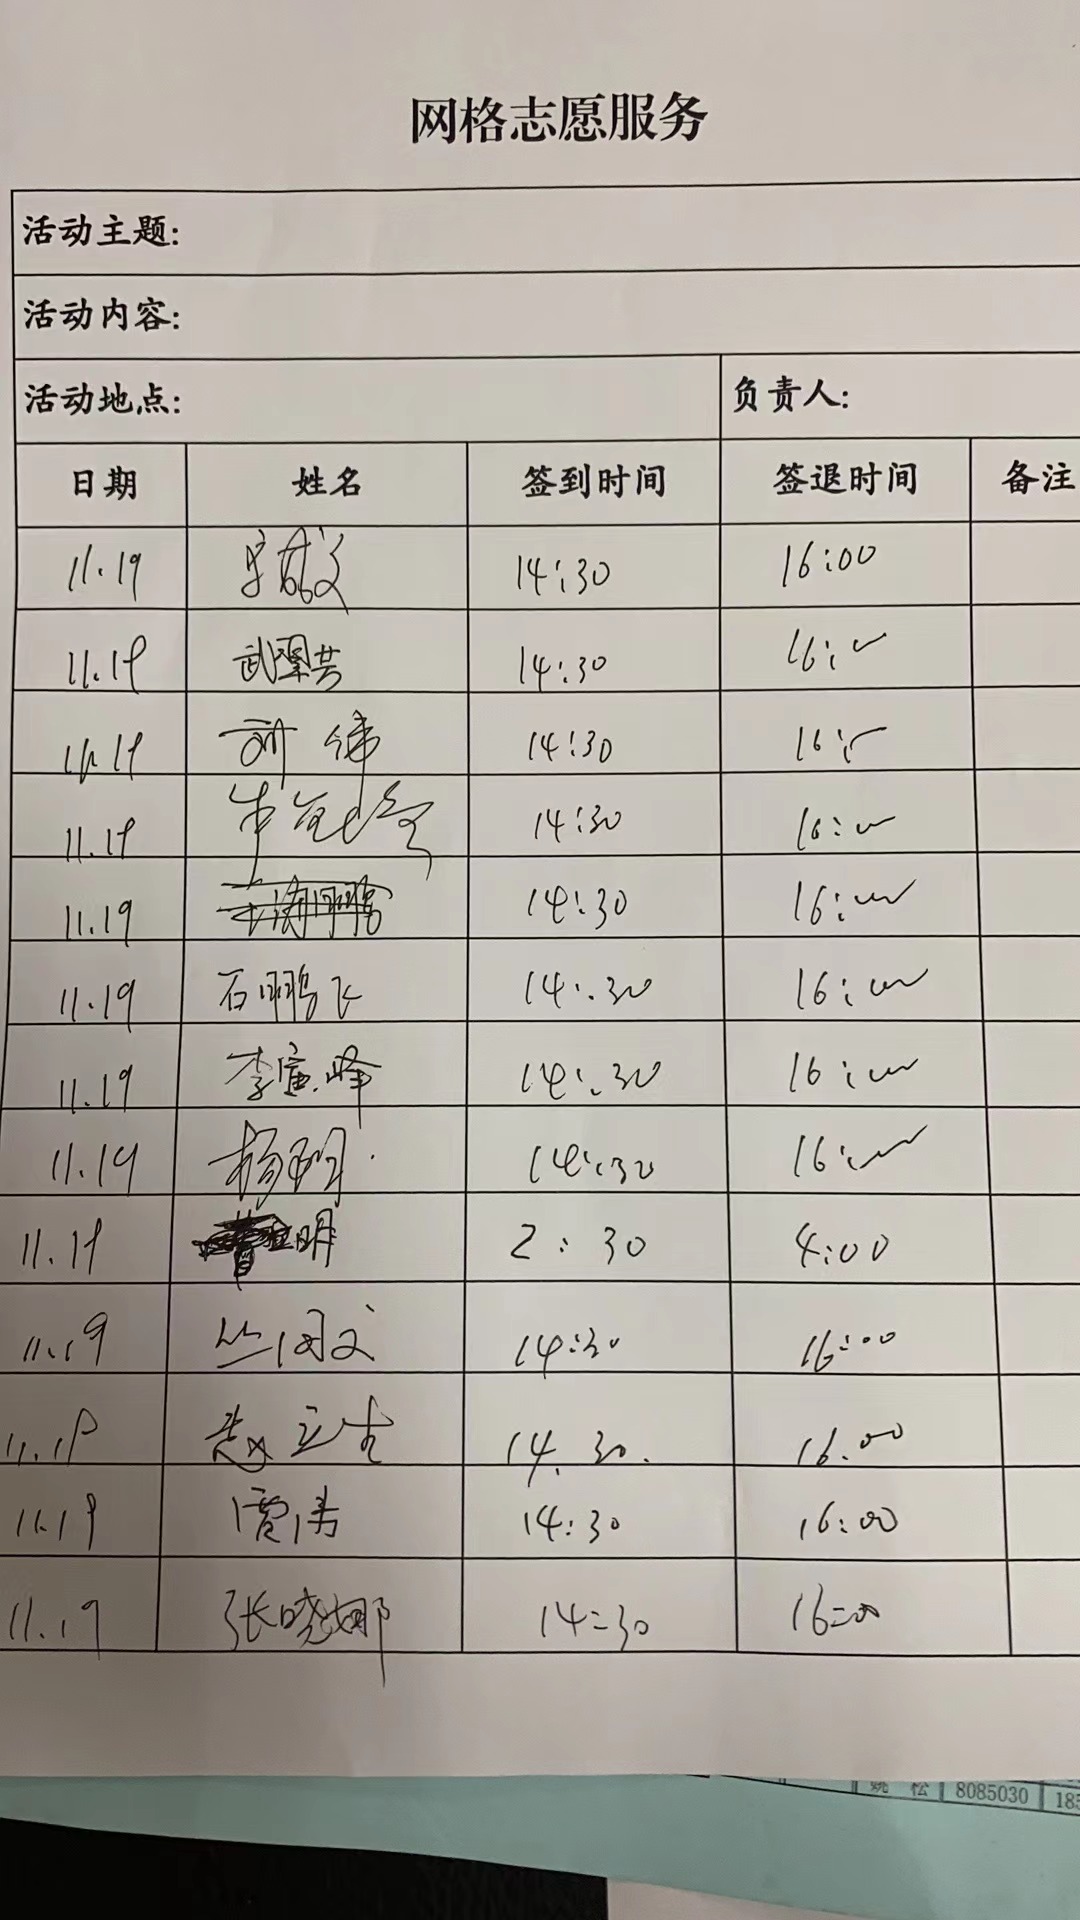 网格志愿服务
活动主题:
活动内容:
活动地点: 负责人:
日期 姓名 签到时间 签退时间 备注
11.19 14:30 16:00
11.19 武 14:30 16:
11.19 伟 14:30 16:
11.19 14:30 16:
11.19 14:30 16:
11.19 石鹏飞 14:30 16:
11.19 李 峰 14:30 16:
11.19 杨 14:30 16:
11.19 明 2:30 4:00
11.19 丛 文 14:30 16:00
11.19 赵立生 14.30. 16.00
11.19 贾涛 14:30 16:00
11.19 张晓娜 14:30 16:00
姚 松 8085030 185